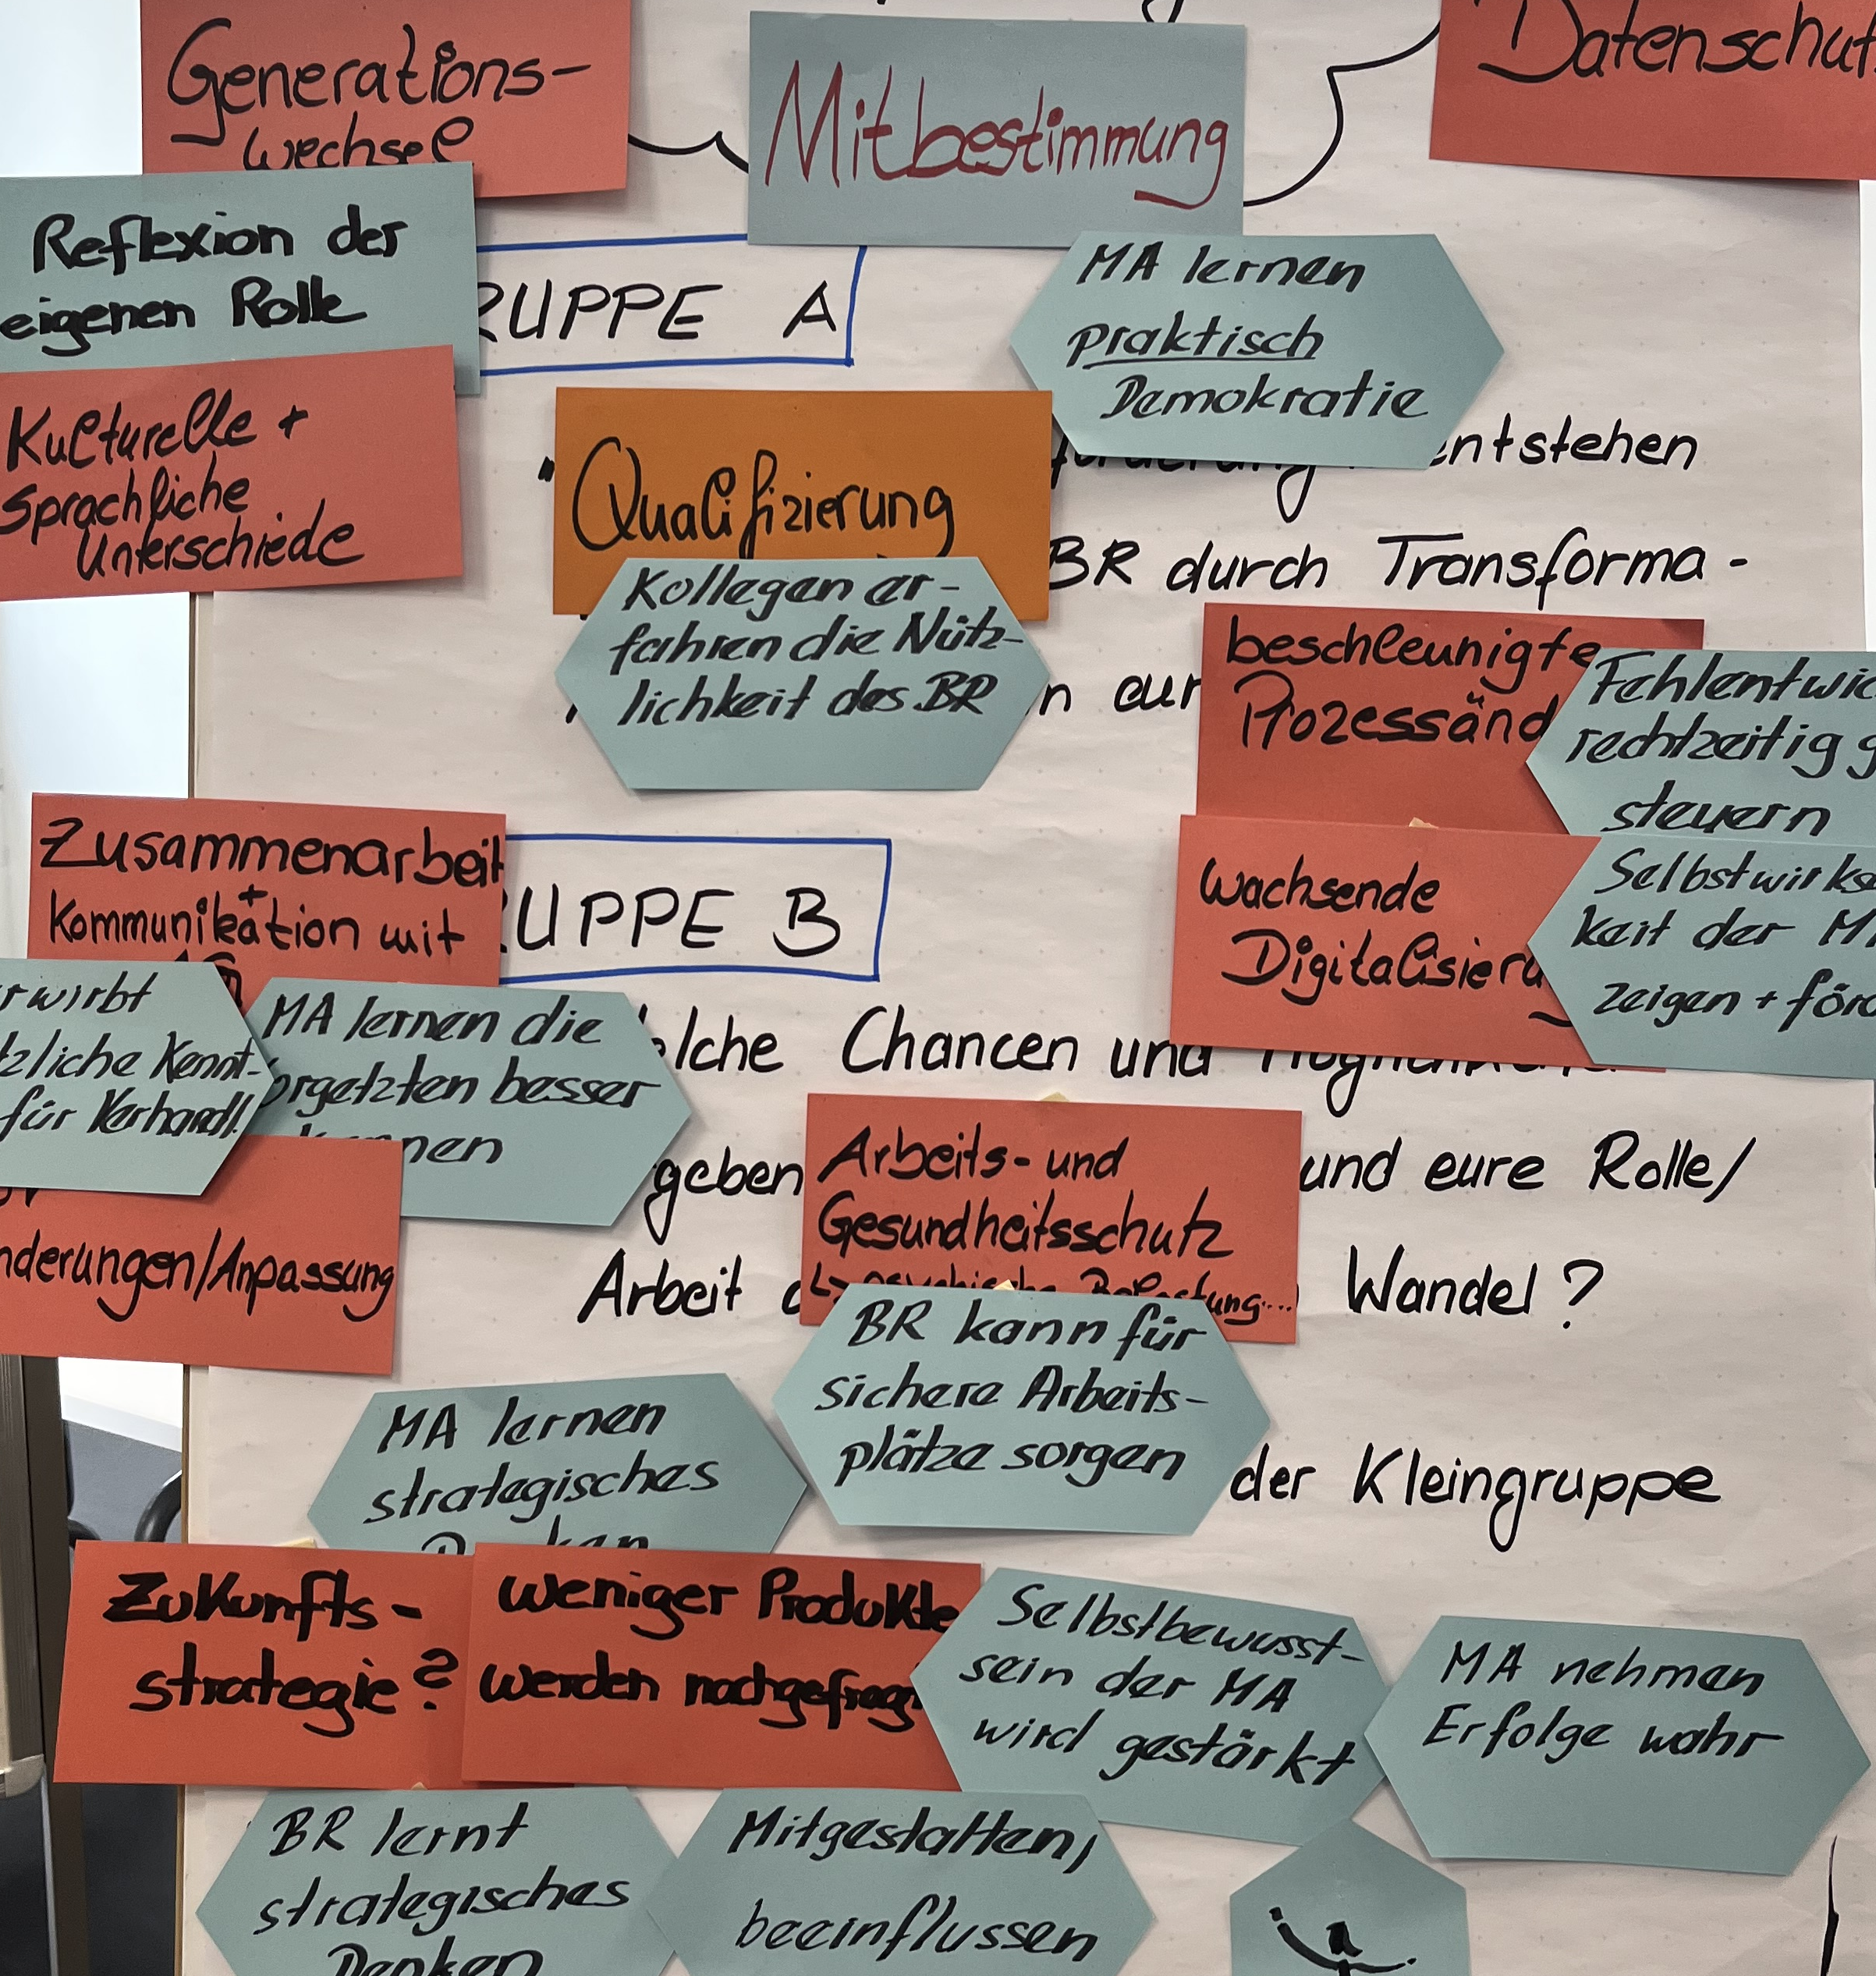 Generations-
wechsel
Mitbestimmung
Datenschut
Reflexion der
eigenen Rolle
RUPPE A
MA lernen
praktisch
Demokratie
Kulturelle +
Sprachliche
Unterschiede
"
Qualifizierung
entstehen
BR durch Transforma-
Kollegen er-
fahren die Nütz-
lichkeit des BR
n eur
beschleunigte
Prozessänd
Fehlentwic
rechtzeitig g
steuern
Zusammenarbeit
+
Kommunikation mit
UPPE B
wachsende
Digitalisieru
Selbstwirksa
keit der MA
zeigen + förd
rwirbt
tzliche Kennt-
für Verhandl.
MA lernen die
orgetzten besser
kennen
elche Chancen und
geben
und eure Rolle/
Arbeits- und
Gesundheitsschutz
↳ psychische Belastung...
nderungen/Anpassung
Arbeit
Wandel?
BR kann für
sichere Arbeits-
plätze sorgen
MA lernen
strategisches
Denken
der Kleingruppe
Zukunfts-
strategie?
weniger Produkte
werden nachgefragt
Selbstbewusst-
sein der MA
wird gestärkt
MA nehmen
Erfolge wahr
BR lernt
strategisches
Denken
Mitgestalten,
beeinflussen